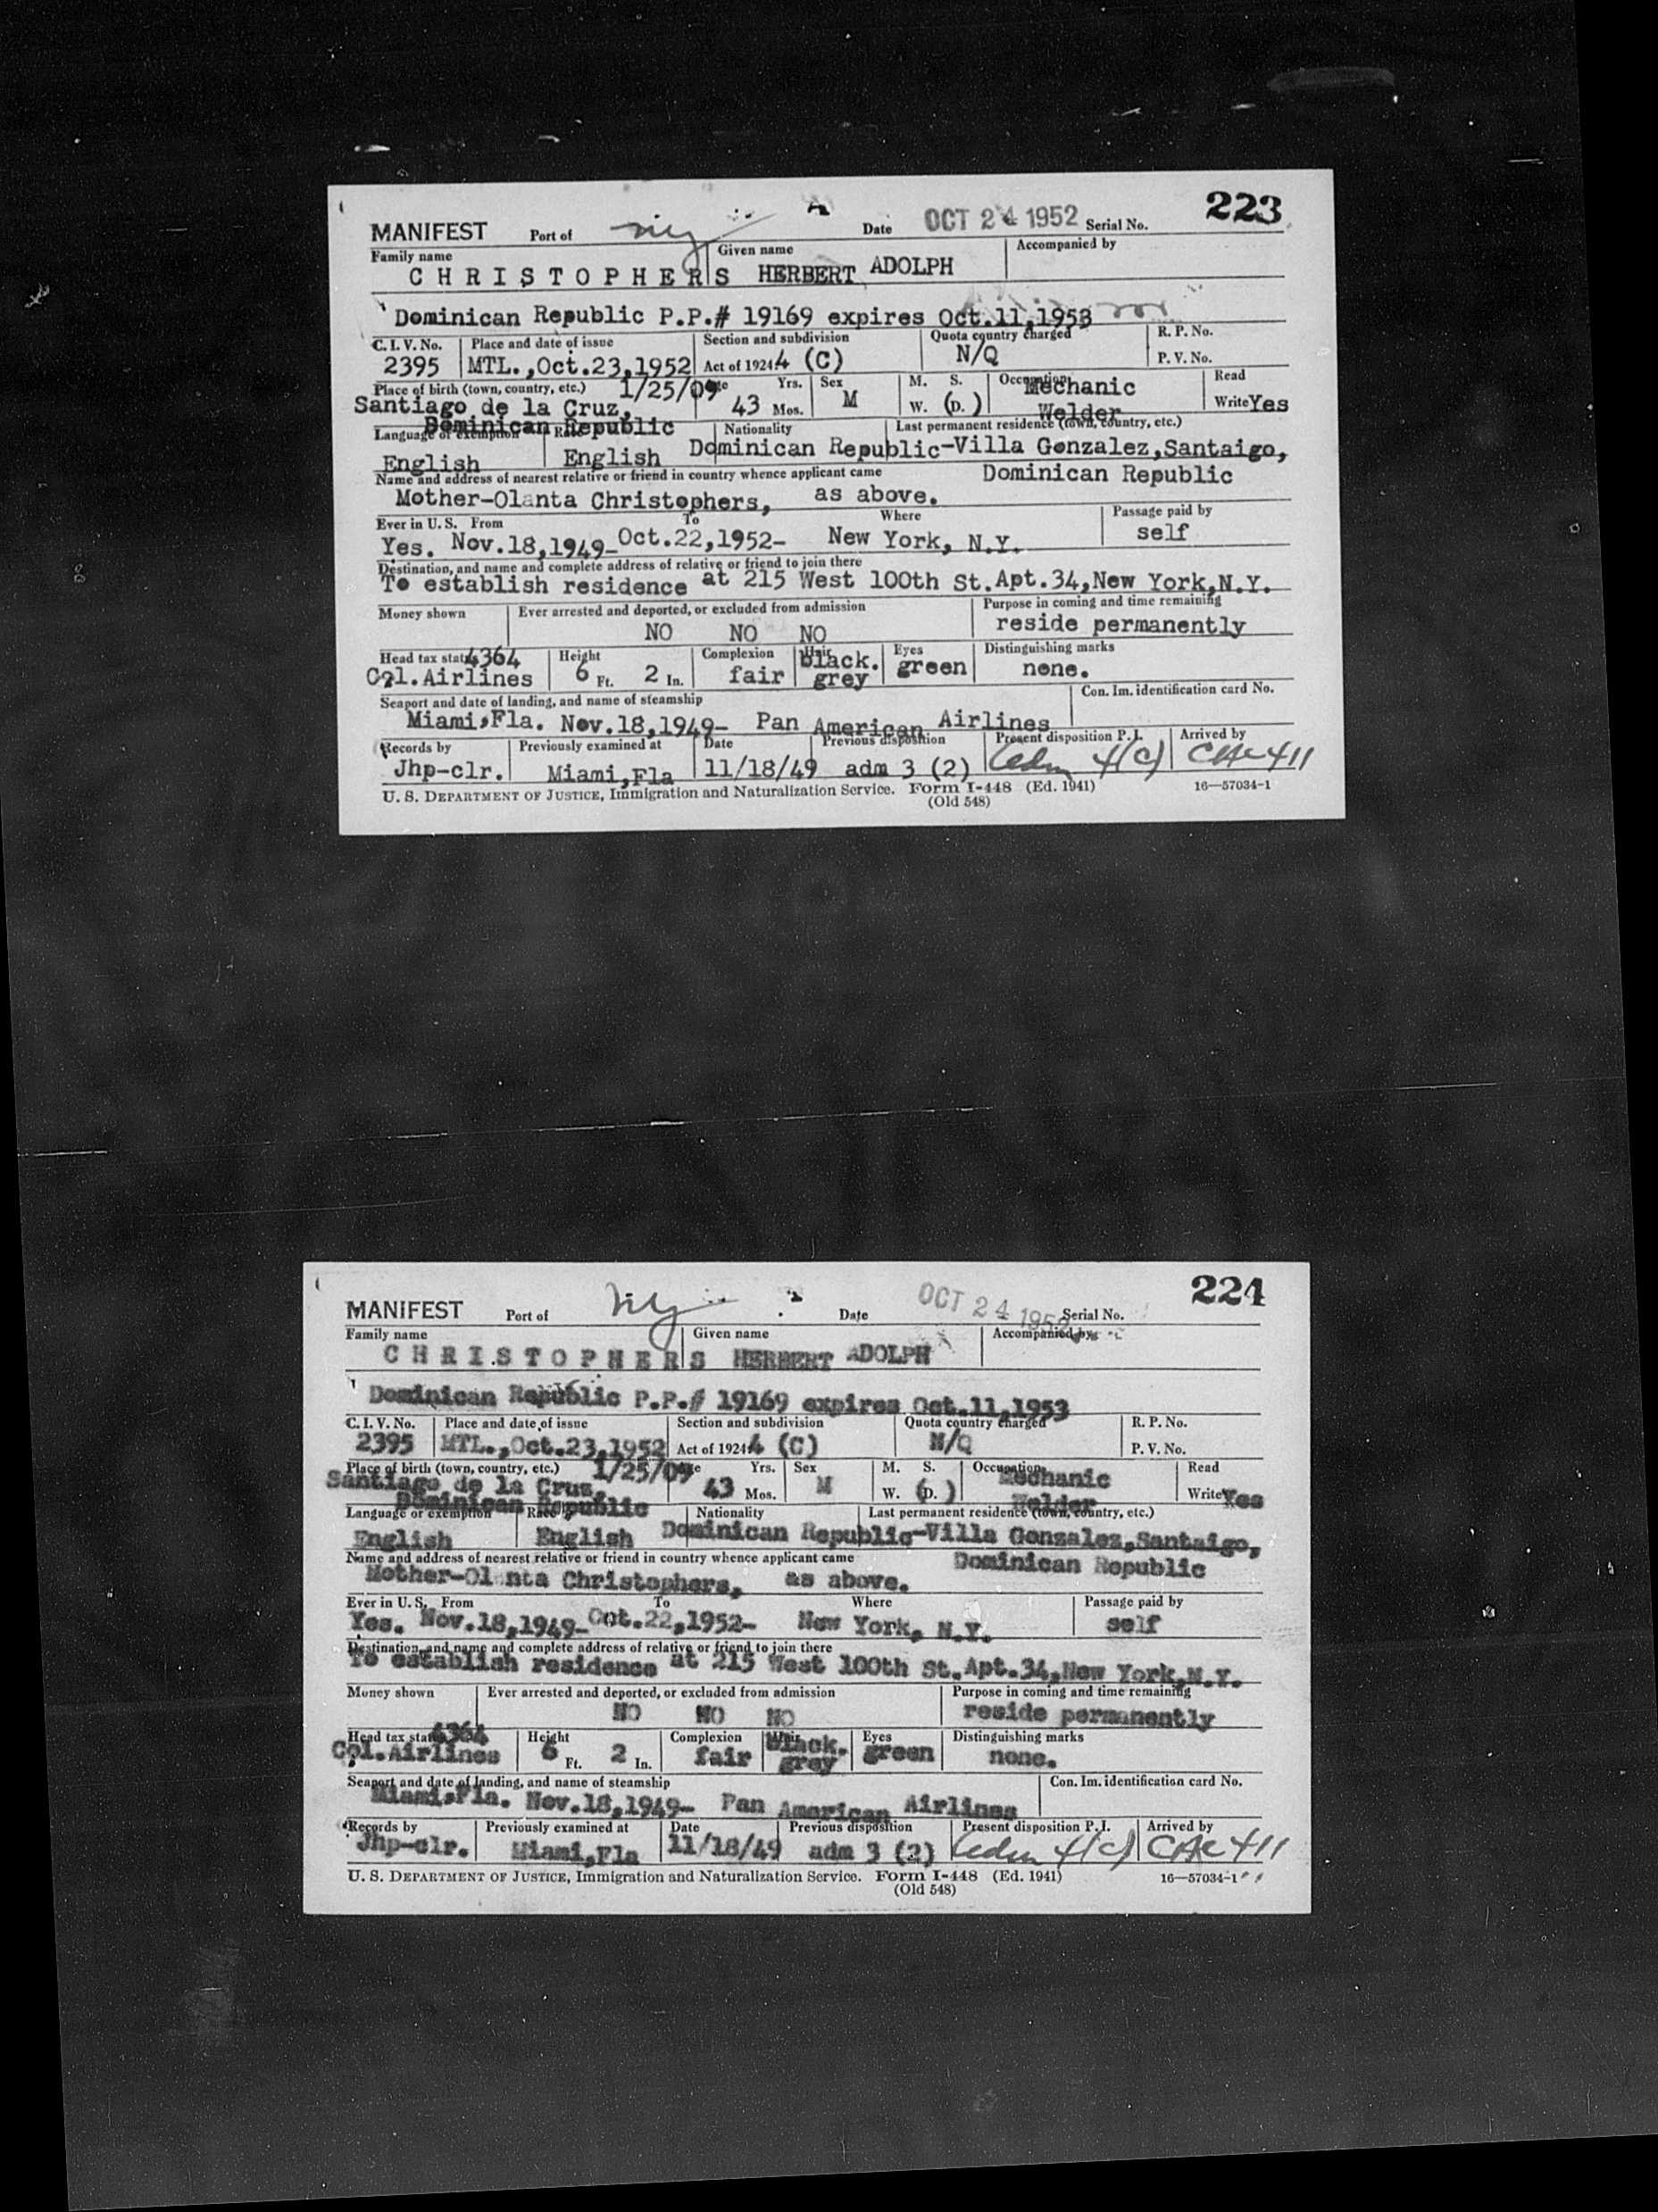 223
MANIFEST Port of NY Date OCT 24 1952 Serial No.
Family name Given name Accompanied by
CHRISTOPHERS HERBERT ADOLPH
Dominican Republic P.P.# 19169 expires Oct.11,1953
C. I. V. No. Place and date of issue Section and subdivision Quota country charged R. P. No.
2395 MTL.,Oct.23,1952 Act of 1924 4 (C) N/Q P. V. No.
Place of birth (town, country, etc.) 1/25/09 Age Yrs. Sex M. S. Occupation Mechanic Read
Santiago de la Cruz, 43 Mos. M W. (D.) Welder Write Yes
Dominican Republic
Language or exemption Race Nationality Last permanent residence (town, country, etc.)
English English Dominican Republic-Villa Gonzalez,Santaigo,
Name and address of nearest relative or friend in country whence applicant came Dominican Republic
Mother-Olanta Christophers, as above.
Ever in U. S. From To Where Passage paid by
Yes. Nov.18,1949-Oct.22,1952- New York, N.Y. self
Destination, and name and complete address of relative or friend to join there
To establish residence at 215 West 100th St.Apt.34,New York,N.Y.
Money shown Ever arrested and deported, or excluded from admission Purpose in coming and time remaining
NO NO NO reside permanently
Head tax status 4364 Height Complexion Hair Eyes Distinguishing marks
Col.Airlines 6 Ft. 2 In. fair black. grey green none.
Seaport and date of landing, and name of steamship Con. Im. identification card No.
Miami,Fla. Nov.18,1949- Pan American Airlines
Records by Previously examined at Date Previous disposition Present disposition P. I. Arrived by
Jhp-clr. Miami,Fla 11/18/49 adm 3 (2) adm 4(c) CAC 411
U. S. DEPARTMENT OF JUSTICE, Immigration and Naturalization Service. Form I-448 (Ed. 1941) 16—57034-1
(Old 548)
224
MANIFEST Port of NY Date OCT 24 1952 Serial No.
Family name Given name Accompanied by
CHRISTOPHERS HERBERT ADOLPH
Dominican Republic P.P.# 19169 expires Oct.11,1953
C. I. V. No. Place and date of issue Section and subdivision Quota country charged R. P. No.
2395 MTL.,Oct.23,1952 Act of 1924 4 (C) N/Q P. V. No.
Place of birth (town, country, etc.) 1/25/09 Age Yrs. Sex M. S. Occupation Mechanic Read
Santiago de la Cruz, 43 Mos. M W. (D.) Welder Write Yes
Dominican Republic
Language or exemption Race Nationality Last permanent residence (town, country, etc.)
English English Dominican Republic-Villa Gonzalez,Santaigo,
Name and address of nearest relative or friend in country whence applicant came Dominican Republic
Mother-Olanta Christophers, as above.
Ever in U. S. From To Where Passage paid by
Yes. Nov.18,1949-Oct.22,1952- New York, N.Y. self
Destination, and name and complete address of relative or friend to join there
To establish residence at 215 West 100th St.Apt.34,New York,N.Y.
Money shown Ever arrested and deported, or excluded from admission Purpose in coming and time remaining
NO NO NO reside permanently
Head tax status 4364 Height Complexion Hair Eyes Distinguishing marks
Col.Airlines 6 Ft. 2 In. fair black. grey green none.
Seaport and date of landing, and name of steamship Con. Im. identification card No.
Miami,Fla. Nov.18,1949- Pan American Airlines
Records by Previously examined at Date Previous disposition Present disposition P. I. Arrived by
Jhp-clr. Miami,Fla 11/18/49 adm 3 (2) adm 4(c) CAC 411
U. S. DEPARTMENT OF JUSTICE, Immigration and Naturalization Service. Form I-448 (Ed. 1941) 16—57034-1
(Old 548)